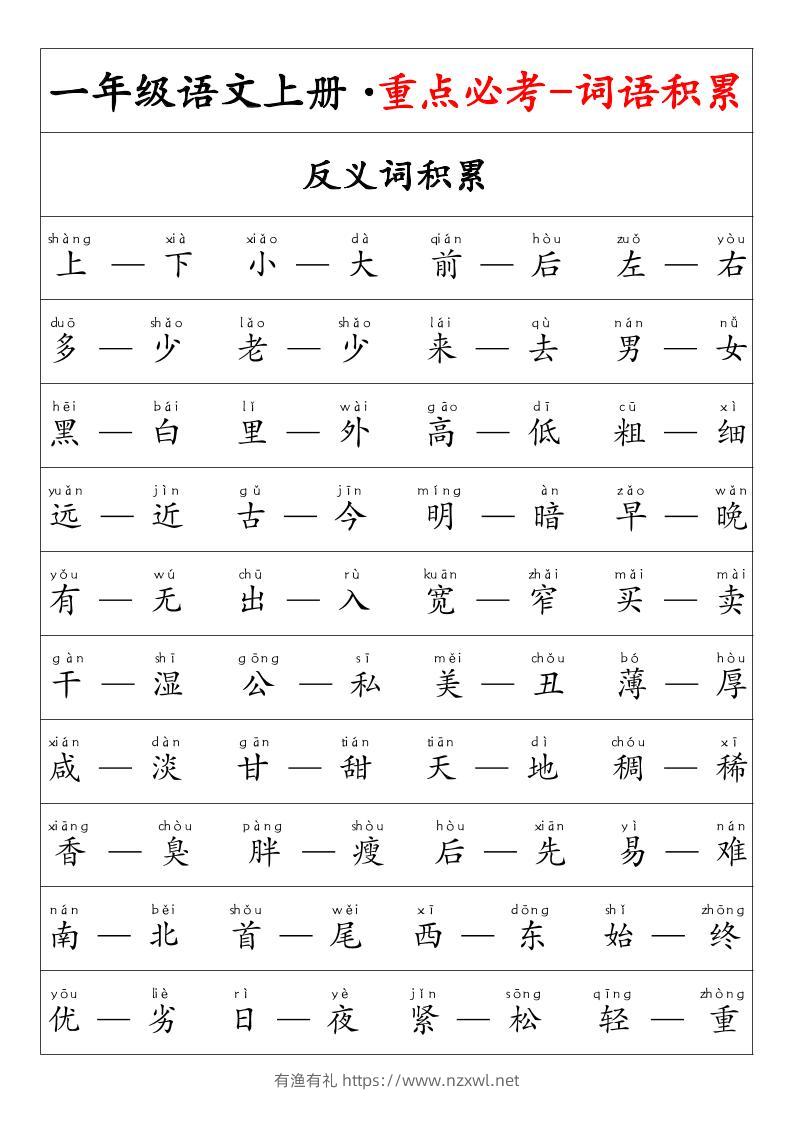 一年级语文上册·重点必考-词语积累
反义词积累
shàng xià xiǎo dà qián hòu zuǒ yòu
上 — 下 小 — 大 前 — 后 左 — 右
duō shǎo lǎo shǎo lái qù nán nǚ
多 — 少 老 — 少 来 — 去 男 — 女
hēi bái lǐ wài gāo dī cū xì
黑 — 白 里 — 外 高 — 低 粗 — 细
yuǎn jìn gǔ jīn míng àn zǎo wǎn
远 — 近 古 — 今 明 — 暗 早 — 晚
yǒu wú chū rù kuān zhǎi mǎi mài
有 — 无 出 — 入 宽 — 窄 买 — 卖
gàn shī gōng sī měi chǒu bó hòu
干 — 湿 公 — 私 美 — 丑 薄 — 厚
xián dàn gān tián tiān dì chóu xī
咸 — 淡 甘 — 甜 天 — 地 稠 — 稀
xiāng chòu pàng shòu hòu xiān yì nán
香 — 臭 胖 — 瘦 后 — 先 易 — 难
nán běi shǒu wěi xī dōng shǐ zhōng
南 — 北 首 — 尾 西 — 东 始 — 终
yōu liè rì yè jǐn sōng qīng zhòng
优 — 劣 日 — 夜 紧 — 松 轻 — 重
有渔有礼 https://www.nzxwl.net